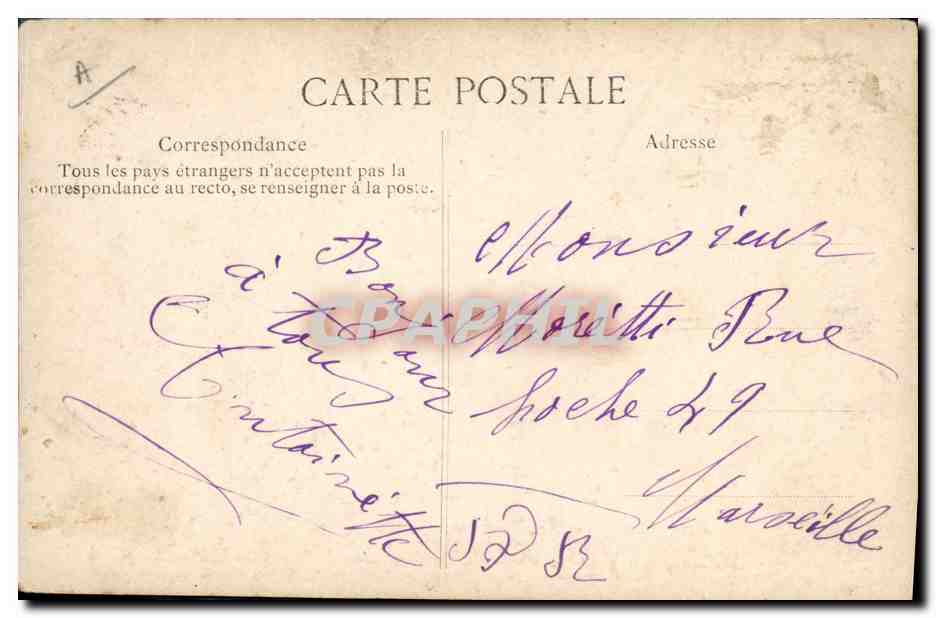 A
CARTE POSTALE
Correspondance
Tous les pays étrangers n'acceptent pas la
correspondance au recto, se renseigner à la poste.
Bonjour
à tous
Antoinette
Adresse
Monsieur
Morétti Rue
hoche 49
Marseille
CPAPHIL